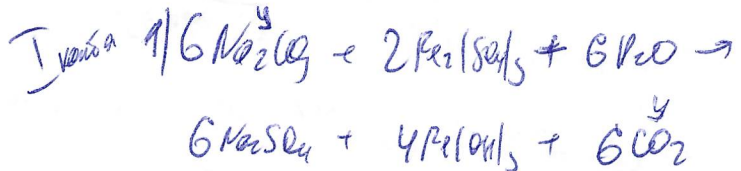 I 1) 6Na2CO3 + 2Fe2(SO4)3 + 6H2O →
6Na2SO4 + 4Fe(OH)3 + 6CO2